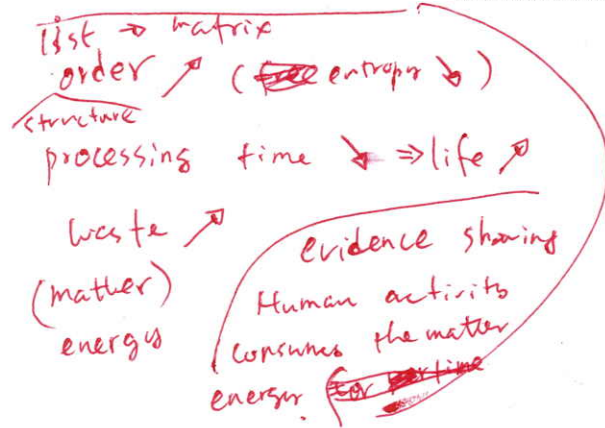 list → matrix
order ↗ (entropy ↘)
structure
processing time ↘ ⇒ life ↗
waste ↗
(matter)
energy
evidence showing
Human activity
consumes the matter
energy.